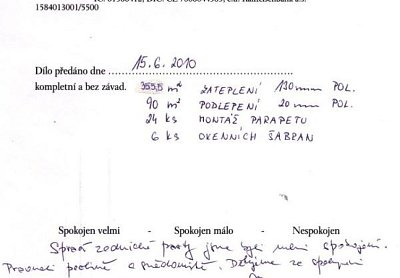 1584013001/5500
Dílo předáno dne 15.6.2010
kompletní a bez závad. 355,5 m² ZATEPLENÍ 130 mm POL.
90 m² PODLEPENÍ 20 mm POL.
24 ks MONTÁŽ PARAPETU
6 ks OKENNÍCH ŠABRAN
Spokojen velmi - Spokojen málo - Nespokojen
party jsme byli velmi spokojeni.
Pracovali poctivě a svědomitě. Děkujeme za